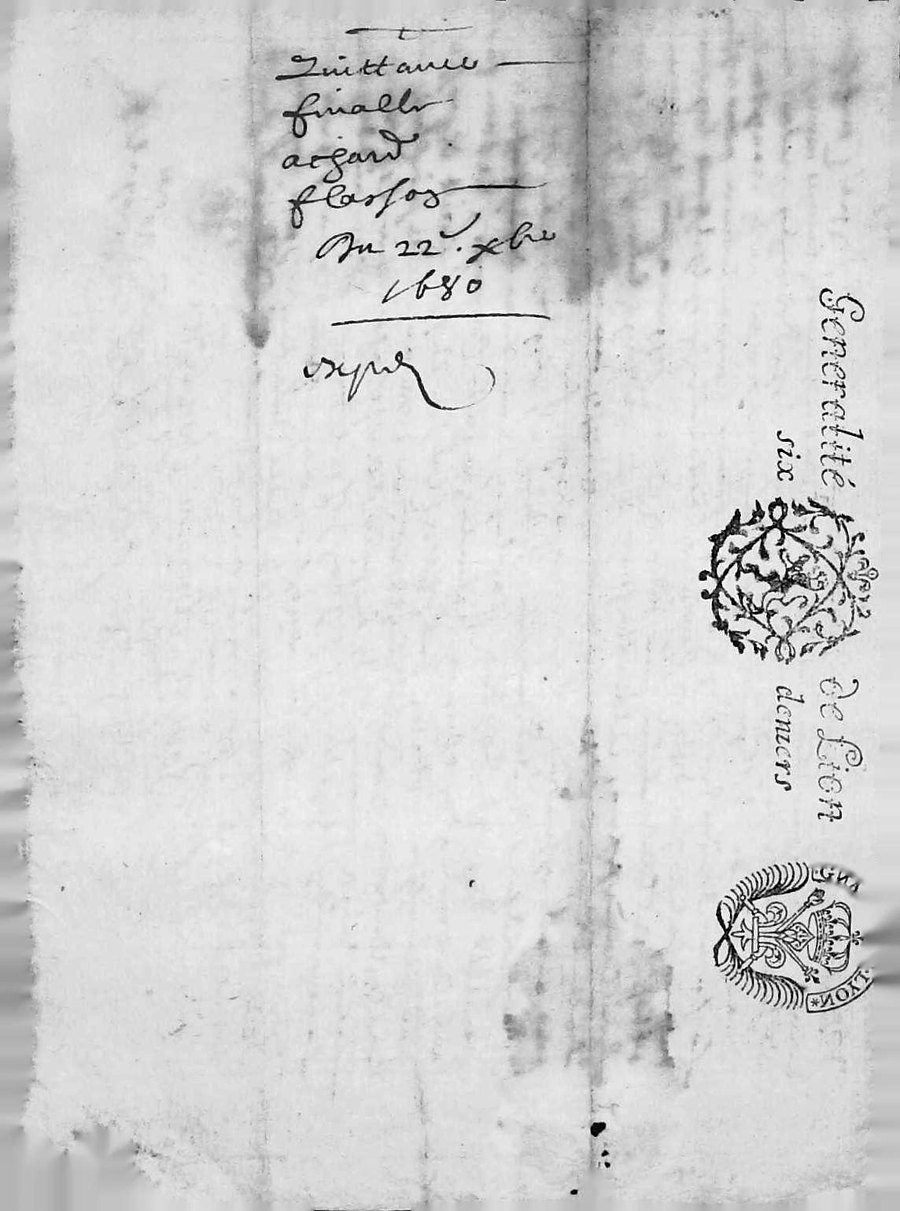 Quittance
finalle
achard
flassos
Du 22e. xbre
1680
Generalité de Lion
six deniers
LYON